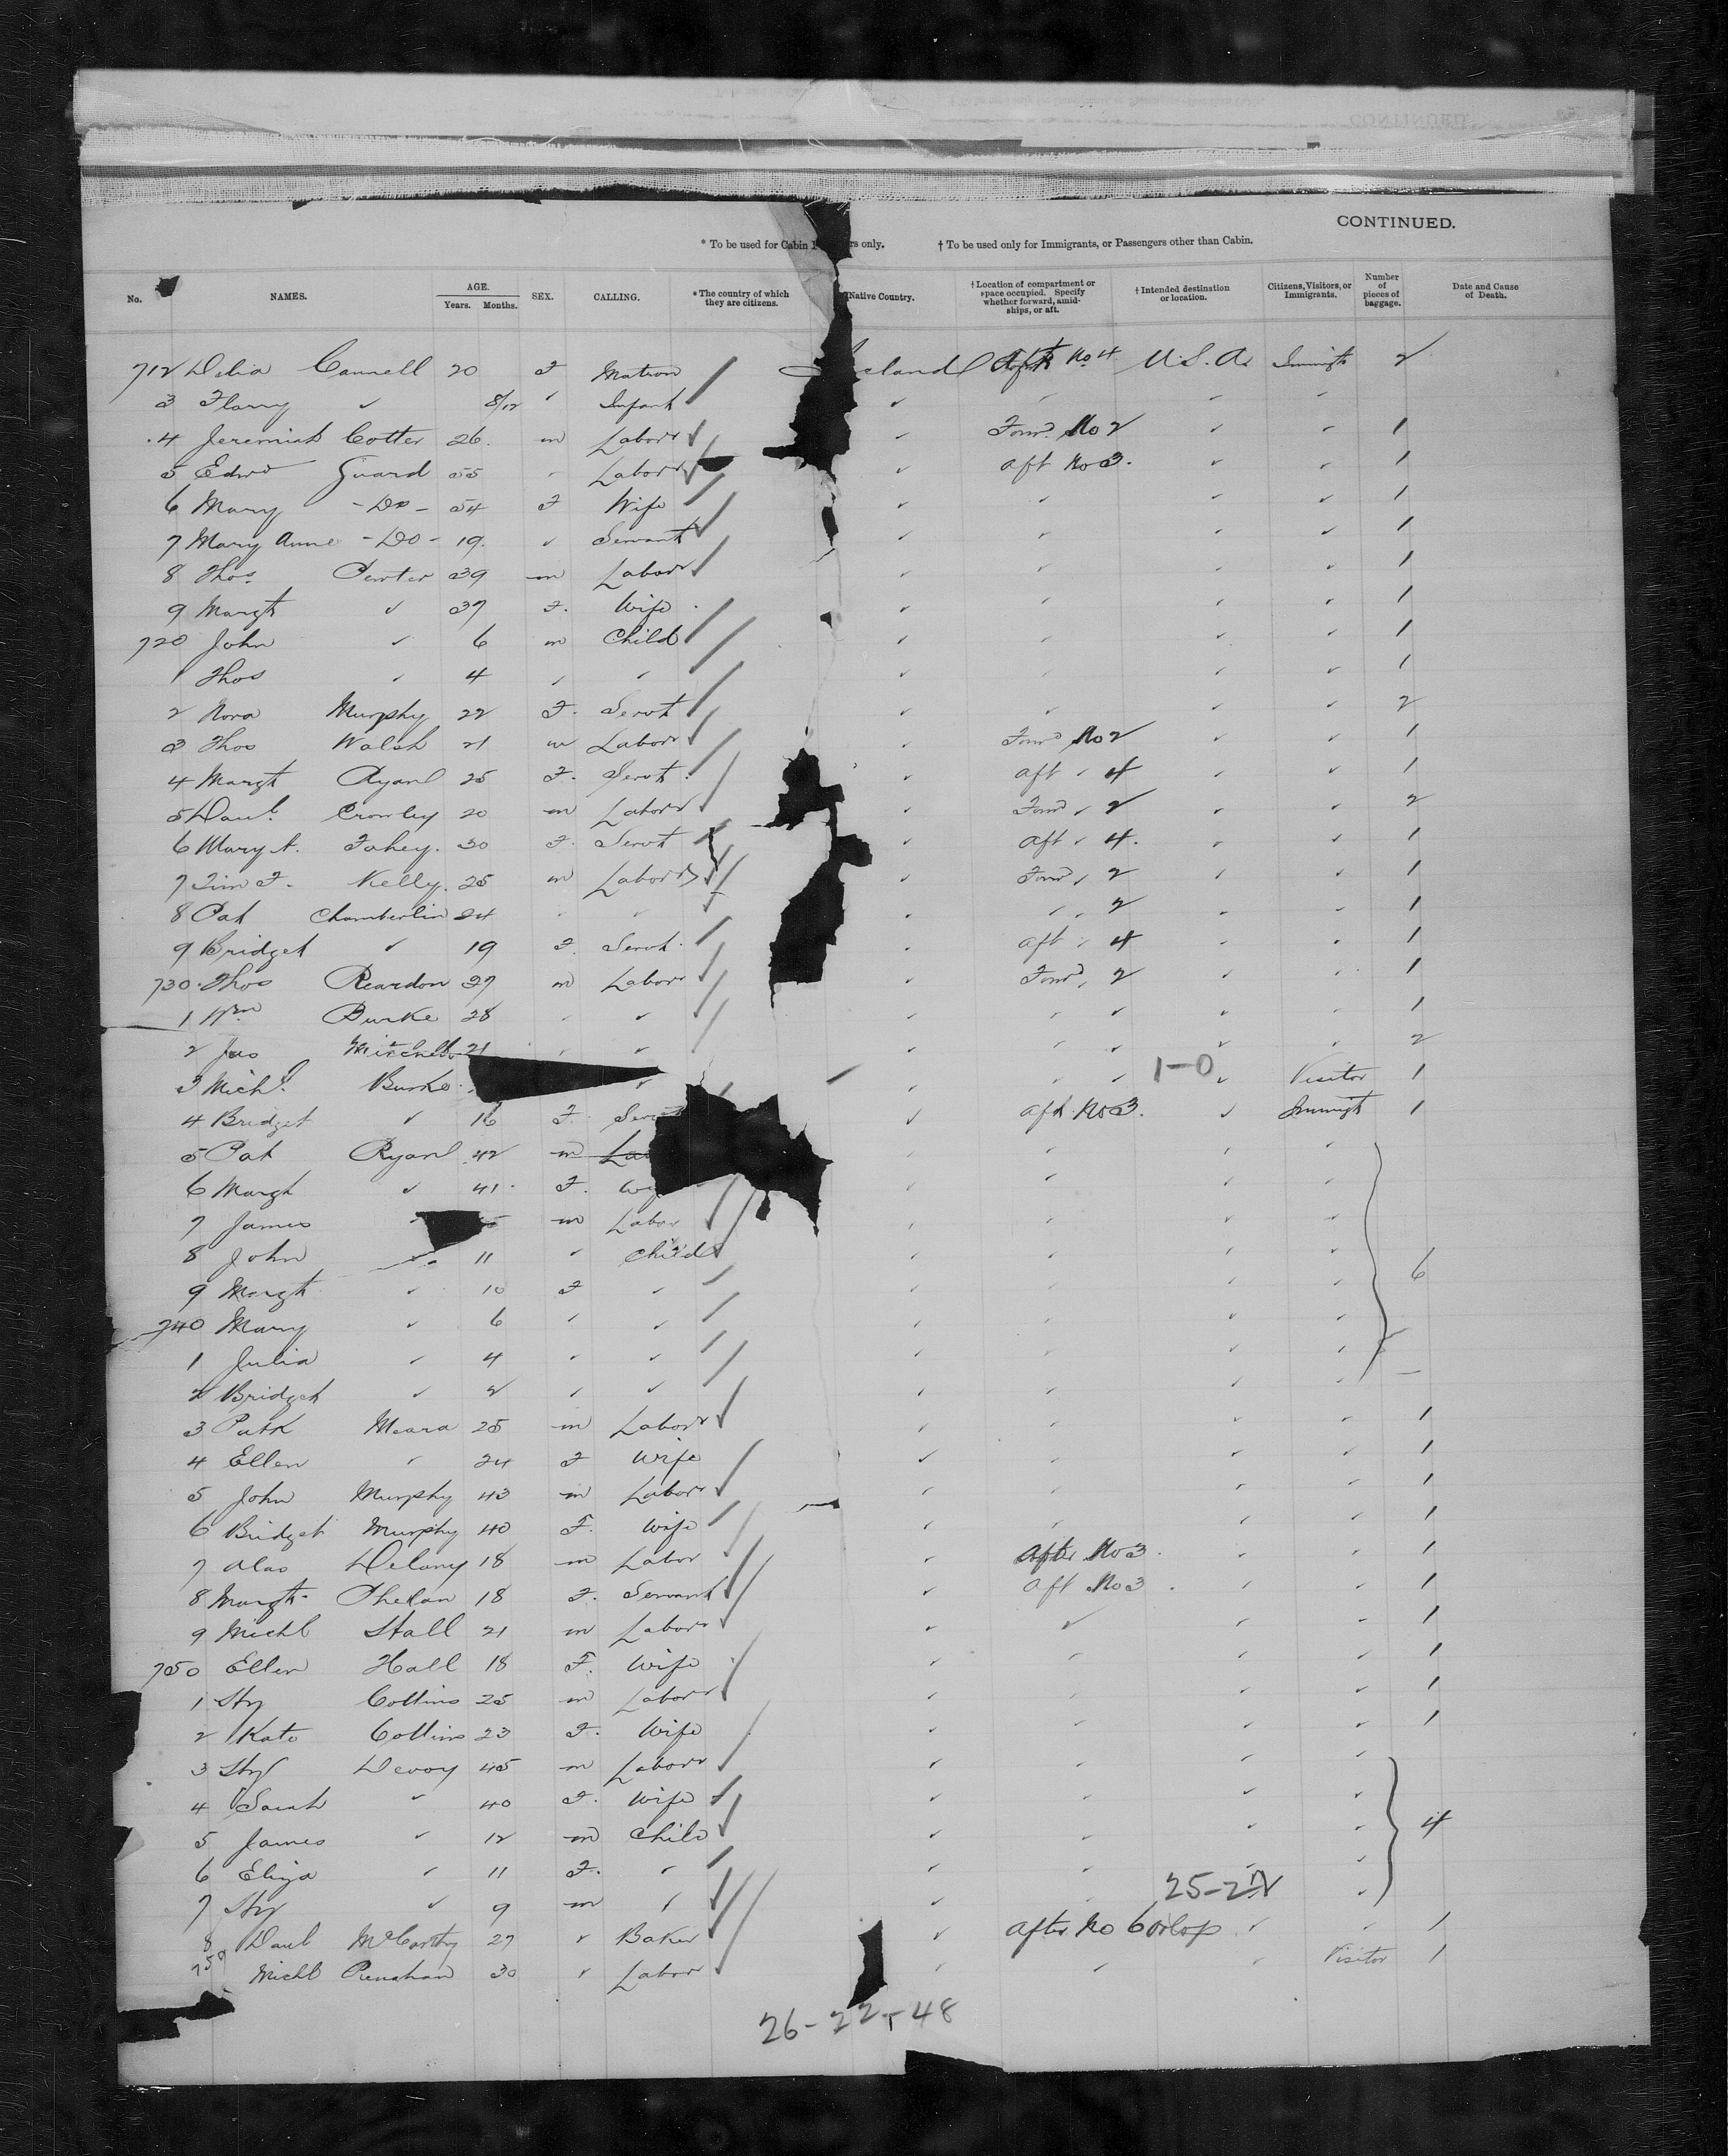 CONTINUED.
* To be used for Cabin rs only. † To be used only for Immigrants, or Passengers other than Cabin.
No. NAMES. AGE. Years. Months. SEX. CALLING. * The country of which they are citizens. Native Country. † Location of compartment or space occupied. Specify whether forward, amidships, or aft. † Intended destination or location. Citizens, Visitors, or Immigrants. Number of pieces of baggage. Date and Cause of Death.
712 Delia Cannell 20 F Matron eland Aft No 4 U.S.A. Immigt 2
3 Flarry ✓ 8/12 ✓ Infant ✓ ✓ ✓ ✓
4 Jeremiah Cotter 26 m Laborr ✓ Forwd No 2 ✓ ✓ 1
5 Edwd Guard 55 ✓ Laborr ✓ aft No 3. ✓ ✓ 1
6 Mary - Do - 54 F Wife ✓ ✓ ✓ ✓ 1
7 Mary Anne - Do - 19 ✓ Servant ✓ ✓ ✓ ✓ 1
8 Thos. Penter 39 m Laborr ✓ ✓ ✓ ✓ 1
9 Margt ✓ 37 F. Wife ✓ ✓ ✓ ✓ 1
720 John ✓ 6 m Child ✓ ✓ ✓ ✓ 1
1 Thos ✓ 4 ✓ ✓ ✓ ✓ ✓ ✓ 1
2 Nora Murphy 22 F. Servt ✓ ✓ ✓ ✓ 2
3 Thos Walsh 21 m Laborr ✓ Forwd No 2 ✓ ✓ 1
4 Margt Ryan 25 F. Servt ✓ aft ✓ 4 ✓ ✓ 1
5 Danl. Crowley 20 m Laborr ✓ Forwd ✓ 2 ✓ ✓ 2
6 Mary A. Fahey. 30 F. Servt ✓ aft ✓ 4. ✓ ✓ 1
7 Tim F. Kelly. 25 m Laborr ✓ Forwd ✓ 2 ✓ ✓ 1
8 Pat Chamberlin 24 ✓ ✓ ✓ ✓ ✓ 2 ✓ ✓ 1
9 Bridget ✓ 19 F. Servt. ✓ aft ✓ 4 ✓ ✓ 1
730 Thos Reardon 27 m Laborr ✓ Forwd ✓ 2 ✓ ✓ 1
1 Wm Burke 28 ✓ ✓ ✓ ✓ ✓ ✓ ✓ 1
2 Jas Mitchell 21 ✓ ✓ ✓ ✓ ✓ ✓ ✓ 2
3 Michl. Burke ✓ ✓ ✓ ✓ 1-0 ✓ Visitor 1
4 Bridget ✓ 16 F. Serv ✓ aft. No 3. ✓ Immigt 1
5 Pat Ryan 42 m La ✓ ✓ ✓ ✓
6 Margt ✓ 41 F. Wi ✓ ✓ ✓ ✓
7 James ✓ m Labor ✓ ✓ ✓ ✓
8 John ✓ 11 ✓ Child ✓ ✓ ✓ ✓ 6
9 Margt ✓ 10 F ✓ ✓ ✓ ✓ ✓
740 Mary ✓ 6 ✓ ✓ ✓ ✓ ✓ ✓
1 Julia ✓ 4 ✓ ✓ ✓ ✓ ✓ ✓
2 Bridget ✓ 2 ✓ ✓ ✓ ✓ ✓ ✓
3 Patk Meara 25 m Laborr ✓ ✓ ✓ ✓ 1
4 Ellen ✓ 24 F Wife ✓ ✓ ✓ ✓ 1
5 John Murphy 43 m Laborr ✓ ✓ ✓ ✓ 1
6 Bridget Murphy 40 F. Wife ✓ ✓ ✓ ✓ 1
7 Delany 18 m Labor ✓ After No 3. ✓ ✓ 1
8 Margt Phelan 18 F. Servant ✓ Aft No 3. ✓ ✓ 1
9 Michl Hall 21 m Laborr ✓ ✓ ✓ ✓ 1
750 Ellen Hall 18 F. Wife ✓ ✓ ✓ ✓ 1
1 Hy Collins 25 m Laborr ✓ ✓ ✓ ✓ 1
2 Kate Collins 23 F. Wife ✓ ✓ ✓ ✓ 1
3 Hy Devoy 45 m Laborr ✓ ✓ ✓ ✓
4 Sarah ✓ 40 F. Wife ✓ ✓ ✓ ✓
5 James ✓ 12 m Child ✓ ✓ ✓ ✓ 4
6 Eliza ✓ 11 F. ✓ ✓ ✓ ✓ ✓
7 Hy ✓ 9 m ✓ ✓ ✓ 25-22 ✓
8 Danl McCarthy 27 ✓ Baker ✓ After No 6 orlop ✓ ✓ 1
759 Michl 30 ✓ Labor ✓ ✓ ✓ Visitor 1
26-22-48